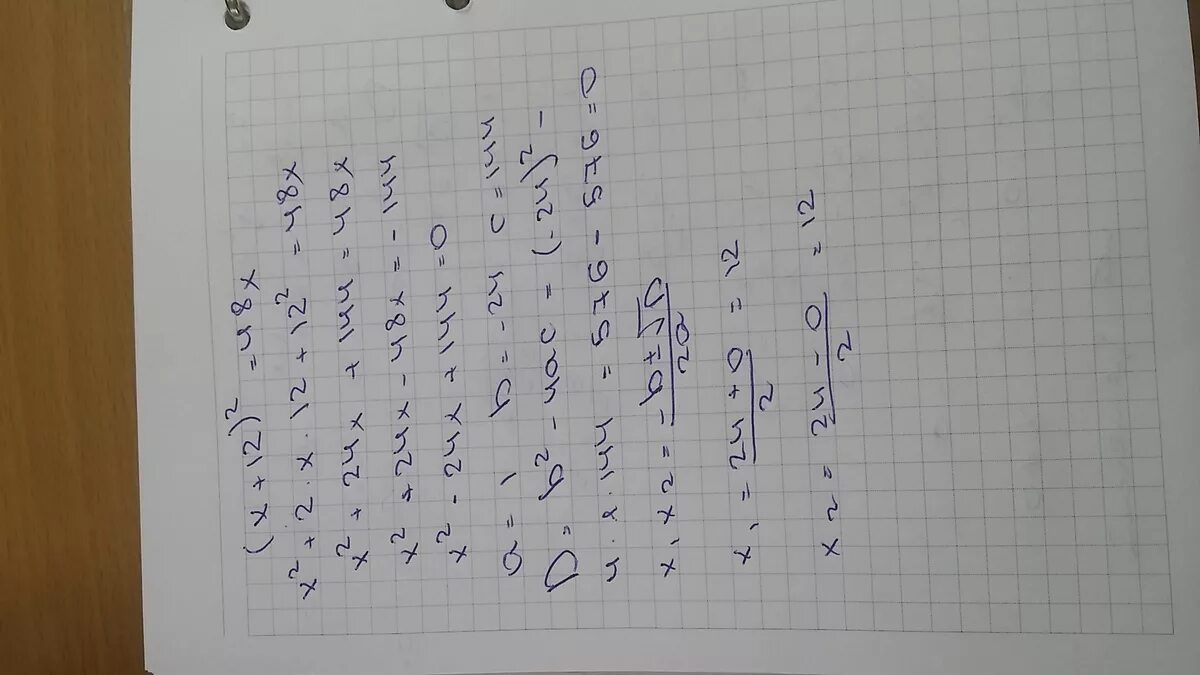 (x+12)² = 48x
x² + 2·x·12 + 12² = 48x
x² + 24x + 144 = 48x
x² + 24x - 48x = -144
x² - 24x + 144 = 0
a = 1 b = -24 c = 144
D = b² - 4ac = (-24)² -
4·1·144 = 576 - 576 = 0
x₁,x₂ = -b±√D/2a
x₁ = 24+0/2 = 12
x₂ = 24-0/2 = 12